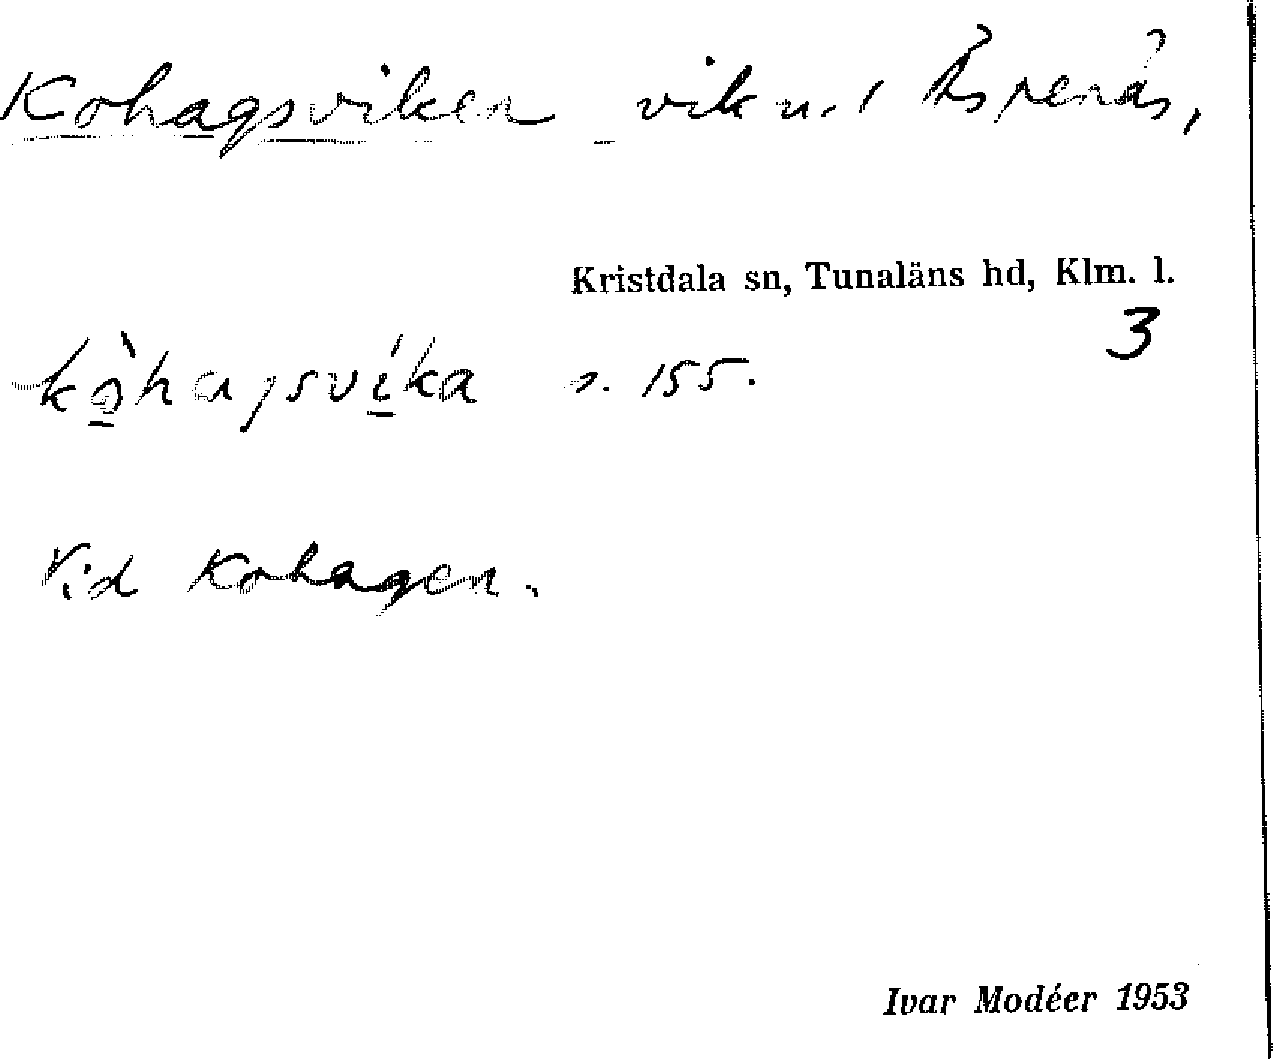 Kohagsviken vik u. l Äspenäs,
Kristdala sn, Tunaläns hd, Klm. l.
3
kòhagsvíka s. 155.
Vid Kohagen.
Ivar Modéer 1953